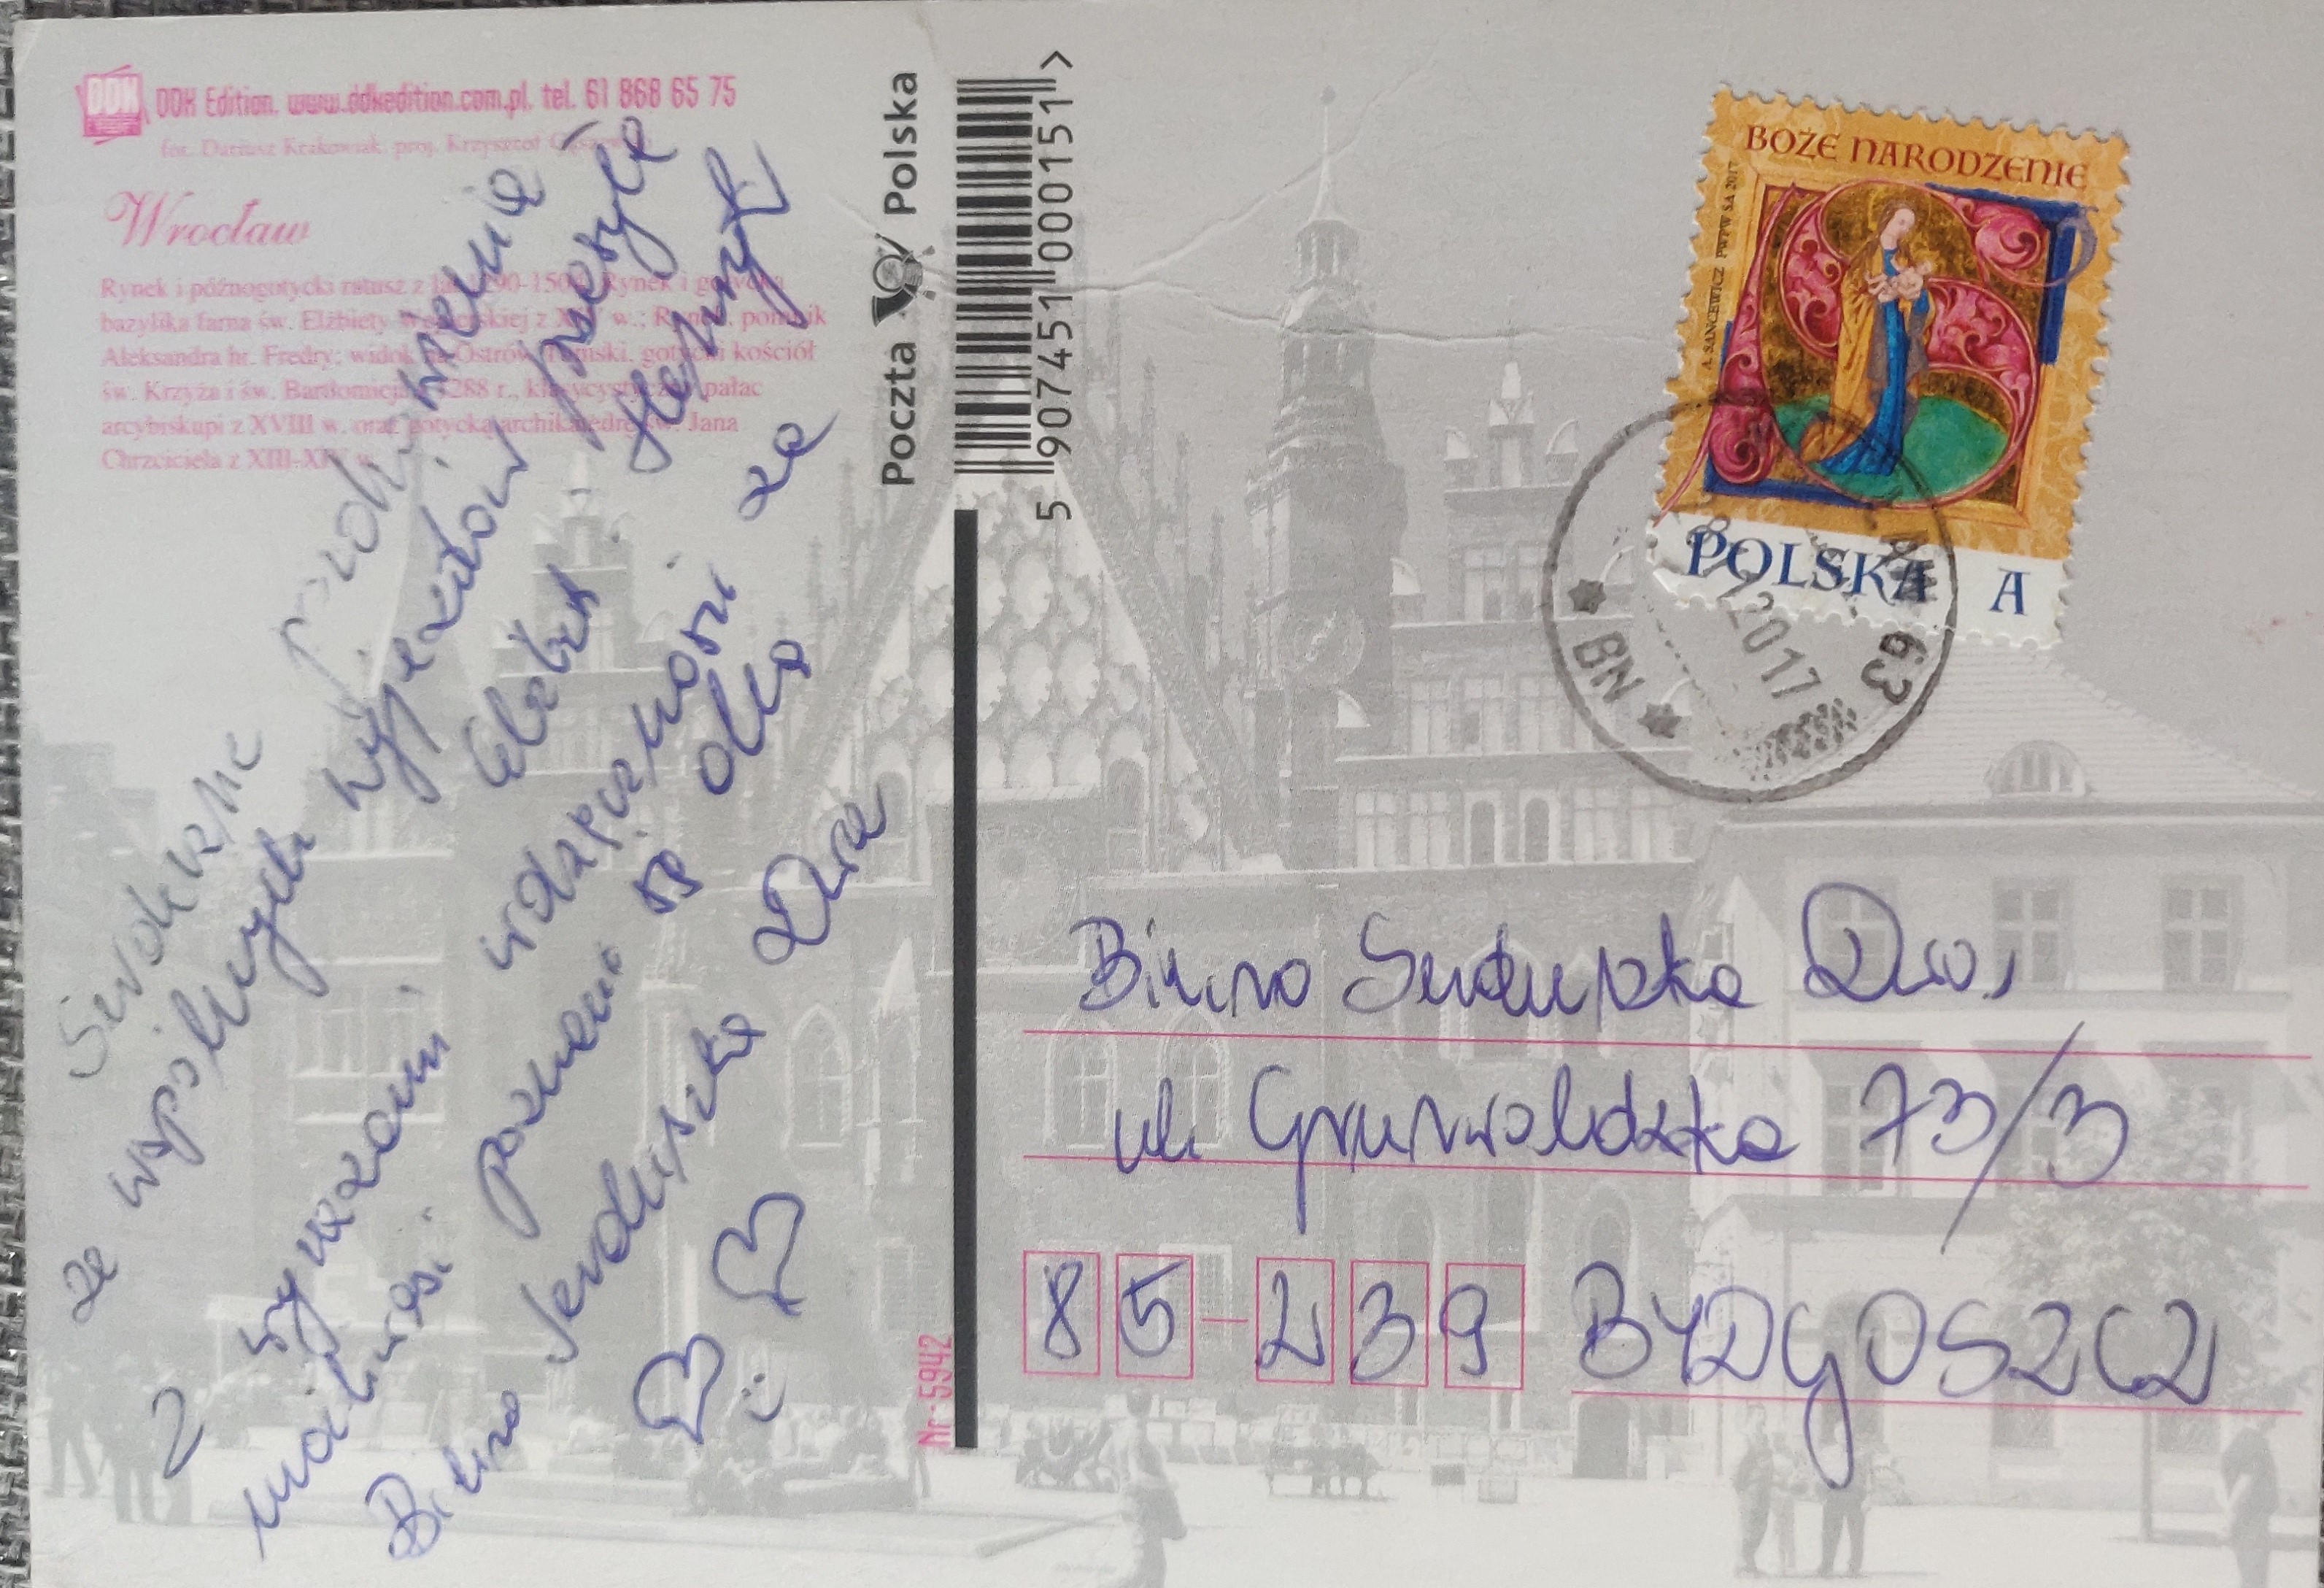 DDK Edition, www.ddkedition.com.pl, tel. 61 868 65 75
fot. Dariusz Krakowiak proj. Krzysztof
Wrocław
Rynek i późnogotycki ratusz z lat 1290-1504; Rynek i gotycka
bazylika farna św. Elżbiety Węgierskiej z XIV w.; Rynek, pomnik
Aleksandra hr. Fredry; widok na Ostrów Tumski, gotycki kościół
św. Krzyża i św. Bartłomieja z 1288 r., klasycystyczny pałac
arcybiskupi z XVIII w. oraz gotycką archikatedrę św. Jana
Chrzciciela z XIII-XIV w.
Serdeczne pozdrowienia
ze wspólnych wyjazdów przesyła
Elżbieta Henryk
Z wyrazami wdzięczności za
możliwość poznania się dla
Biura Serduszka Dwa
Nr: 5942
Poczta Polska
5 907451 000151 >
BOŻE NARODZENIE
A. SANCEWICZ PWPW SA 2017
POLSKA A
2017
63
BN
Biuro Serduszka Dwa
ul Grunwaldzka 73/3
85-239 BYDGOSZCZ